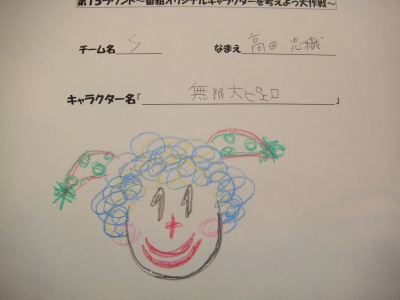 第15ラウンド~番組オリジナルキャラクターを考えよう大作戦~
チーム名 S なまえ 高田 志織
キャラクター名「 無限大ピエロ 」